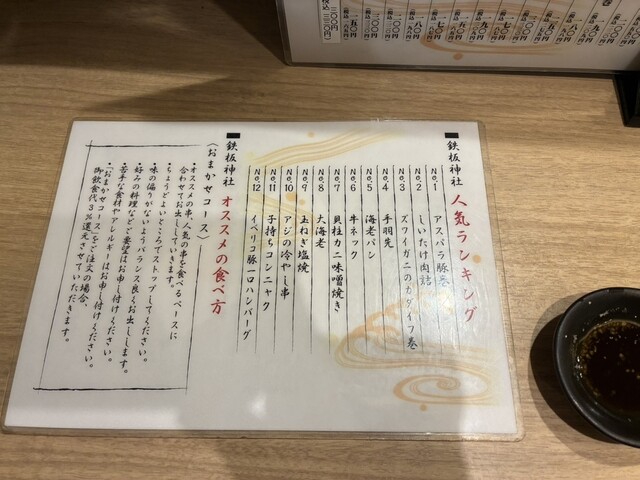 ■鉄板神社 人気ランキング
No.1 アスパラ豚巻
No.2 しいたけ肉詰
No.3 ズワイガニのカダイフ巻
No.4 手羽先
No.5 海老パン
No.6 牛ネック
No.7 貝柱カニ味噌焼き
No.8 大海老
No.9 玉ねぎ塩焼
No.10 アジの冷やし串
No.11 子持ちコンニャク
No.12 イベリコ豚一口ハンバーグ
■鉄板神社 オススメの食べ方
〈おまかせコース〉
オススメの串、人気の串を食べるペースに
合わせてお出ししていきます。
・ちょうどよいところでストップしてください。
・味の偏りがないようバランス良くお出しします。
・好みの料理などご要望はお申し付けください。
・苦手な食材やアレルギーはお申し付けください。
・「おまかせコース」をご注文の場合、
御飲食代3%還元させていただきます。